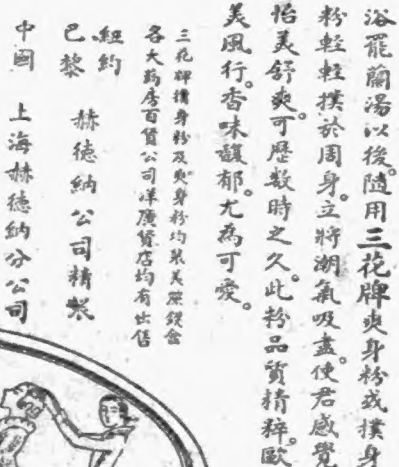 浴罷蘭湯以後。隨用三花牌爽身粉或撲身
粉輕輕撲於周身。立將潮氣吸盡。使君感覺
怡美舒爽。可歷數時之久。此粉品質精粹。歐
美風行。香味馥郁。尤為可愛。
三花牌撲身粉及爽身粉均裝美麗鐵盒
各大藥房百貨公司洋廣貨店均有出售
紐約
巴黎 赫德納公司精製
中國 上海赫德納分公司